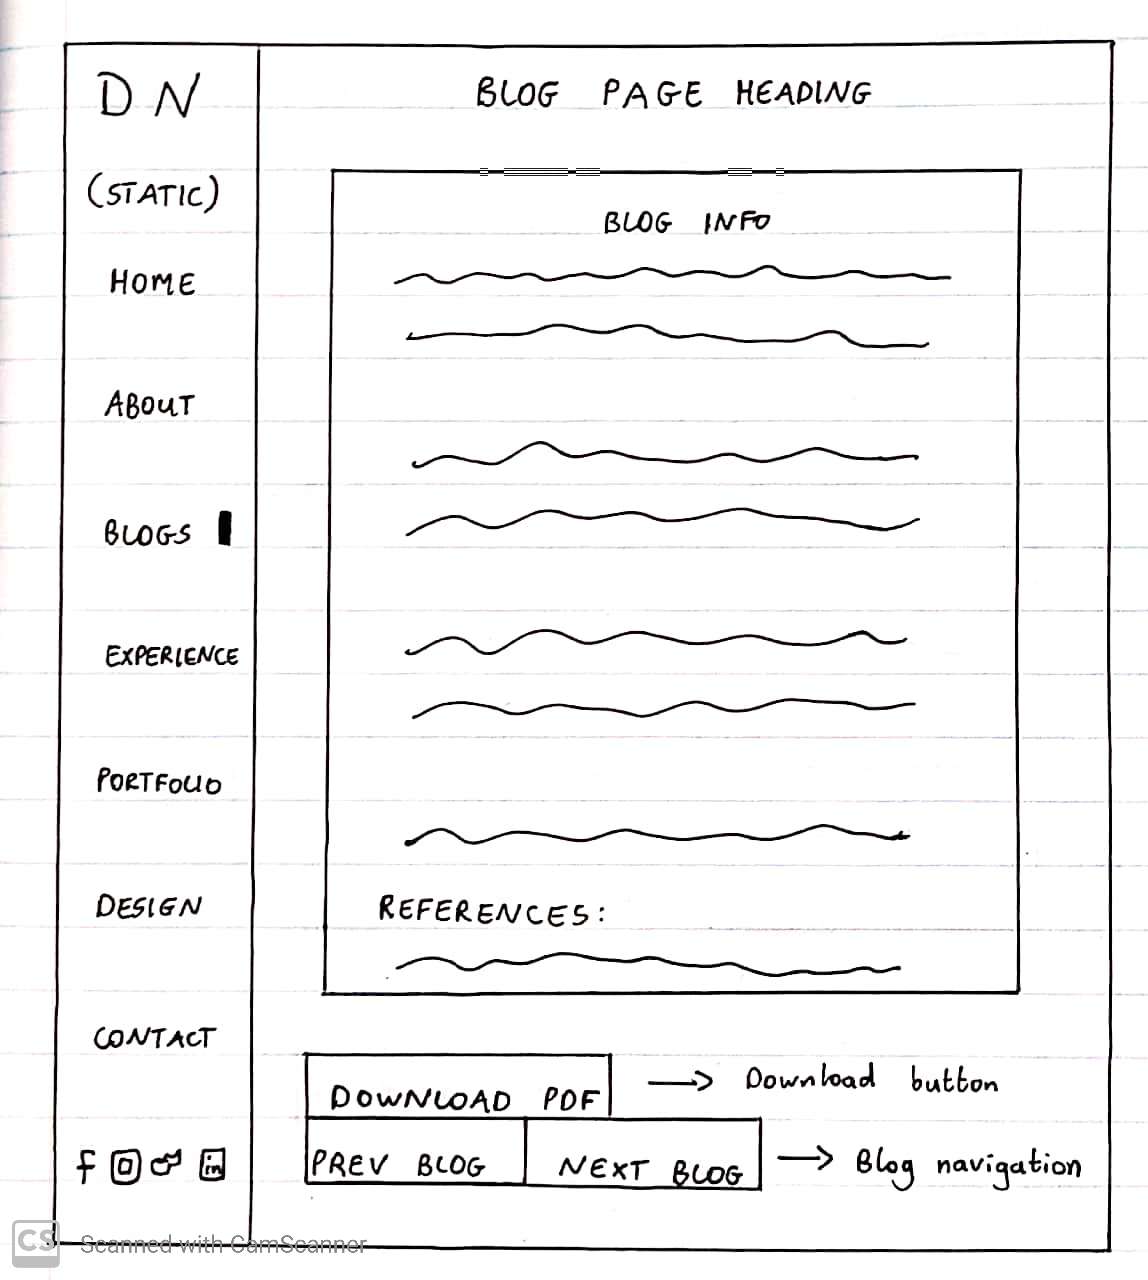 DN
(STATIC)
HOME
ABOUT
BLOGS
EXPERIENCE
PORTFOLIO
DESIGN
CONTACT
f in
BLOG PAGE HEADING
BLOG INFO
REFERENCES:
DOWNLOAD PDF → Download button
PREV BLOG NEXT BLOG → Blog navigation
CS Scanned with CamScanner